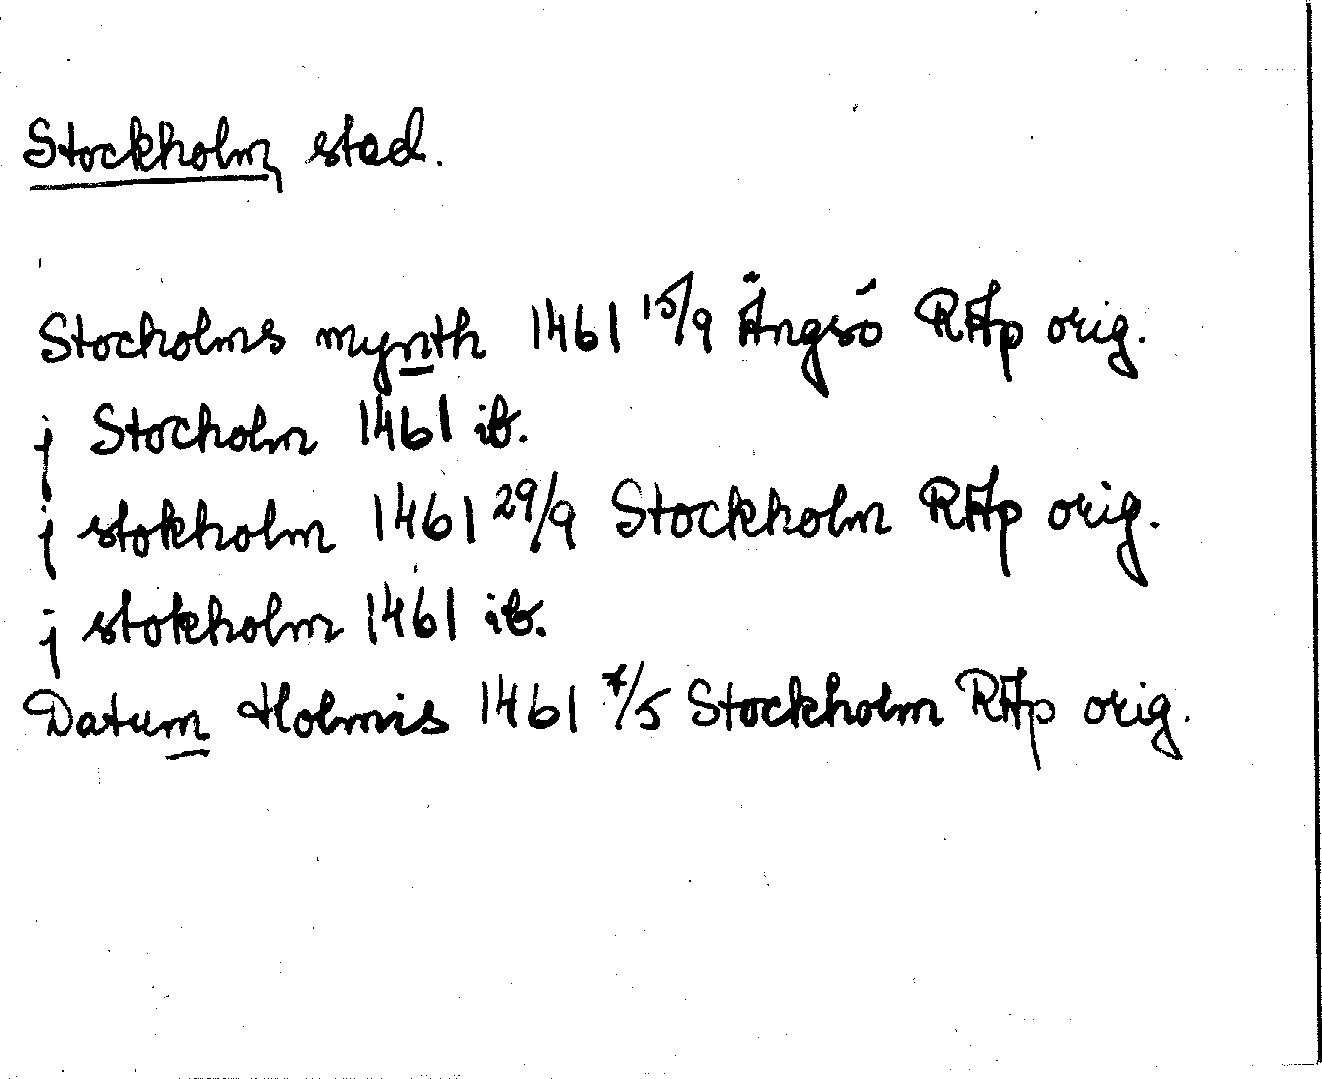 Stockholm, stad.
Stocholms mynth 1461 15/9 Ängsö RAp orig.
j Stocholm 1461 ib.
j stokholm 1461 29/9 Stockholm RAp orig.
j stokholm 1461 ib.
Datum Holmis 1461 7/5 Stockholm RAp orig.